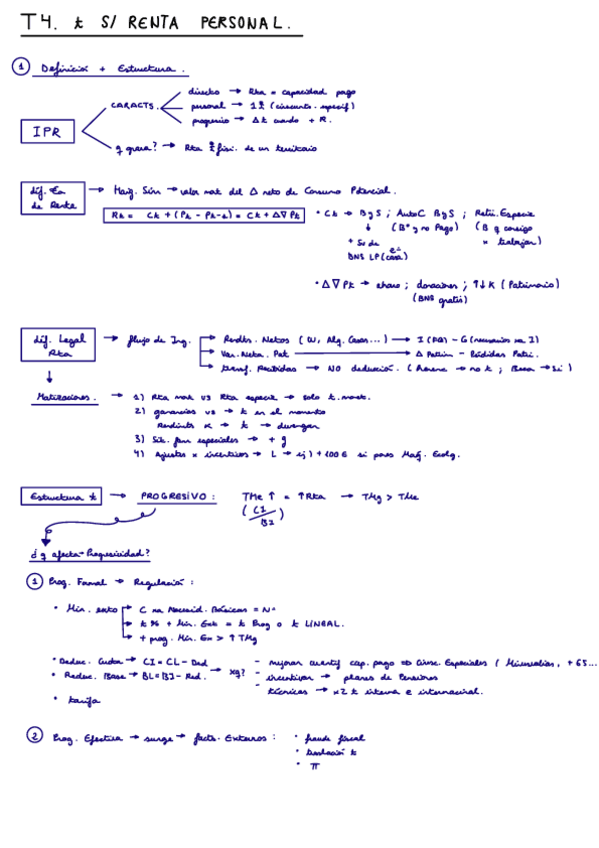 T4. t S/ RENTA PERSONAL.
① Definición + Estructura.
IPR
CARACTS.
directo → Rta = capacidad pago
personal → 1 (circunst. especif)
progresivo → Δ t cuando + R.
q grava? → Rta fisi. de un territorio
dif. Ec.
de Renta
→ Haig. Sim → valor mat. del Δ neto de Consumo Potencial.
Rt = Ct + (Pt - Pt-1) = Ct + Δ∇ Pt
• Ct → B y S ; AutoC B y S ; Retri. Especie
↓ (Bº y no Pago) (B q consigo
+ Sv de x trabajar)
BNS LP (casa)
• Δ∇ Pt → ahorro ; donaciones ; ↑↓ K (Patrimonio)
(BNS gratis)
dif. Legal
Rta
→ flujo de Ing.
Rendtos. Netos (W, Alq. Casas...) → I (PQ) - G (necesarios xa I)
Var. Neta. Pat → Δ Patrim - Pérdidas Patri.
transf. Recibidas → NO deducción. (Herenc → no t ; Beca → Si)
↓
Matizaciones. → 1) Rta mat vs Rta especie → solo t. mat.
2) ganancias vs → t en el momento
Rendimts K → t → devengan
3) Sit. fam especiales → + g
4) Ajustes x incentivos → L → ej) + 100 € si pones Maq. Ecolog.
Estructura t → PROGRESIVO : TMe ↑ = ↑ Rta → TMg > TMe
(CI
BI)
¿ q afecta → Progresividad?
① Prog. Formal → Regulación :
• Min. exento
→ C na Necesid. Básicas = Nº
→ t % + Min. Ext = t Prog o t LINEAL.
→ + prog. Min. Ex > ↑ TMg
• Deduc. Cuota → CI = CL - Ded
• Reduc. Base → BL = BI - Red.
→ xq?
- mejorar cuantif cap. pago ⇒ Circs. Especiales (Minusvalías, + 65...
- incentivar → planes de Pensiones
- técnicas → x2 t interna e internacional.
• tarifa
② Prog. Efectiva → surge → facts. Externos : • fraude fiscal
• traslación t
• π